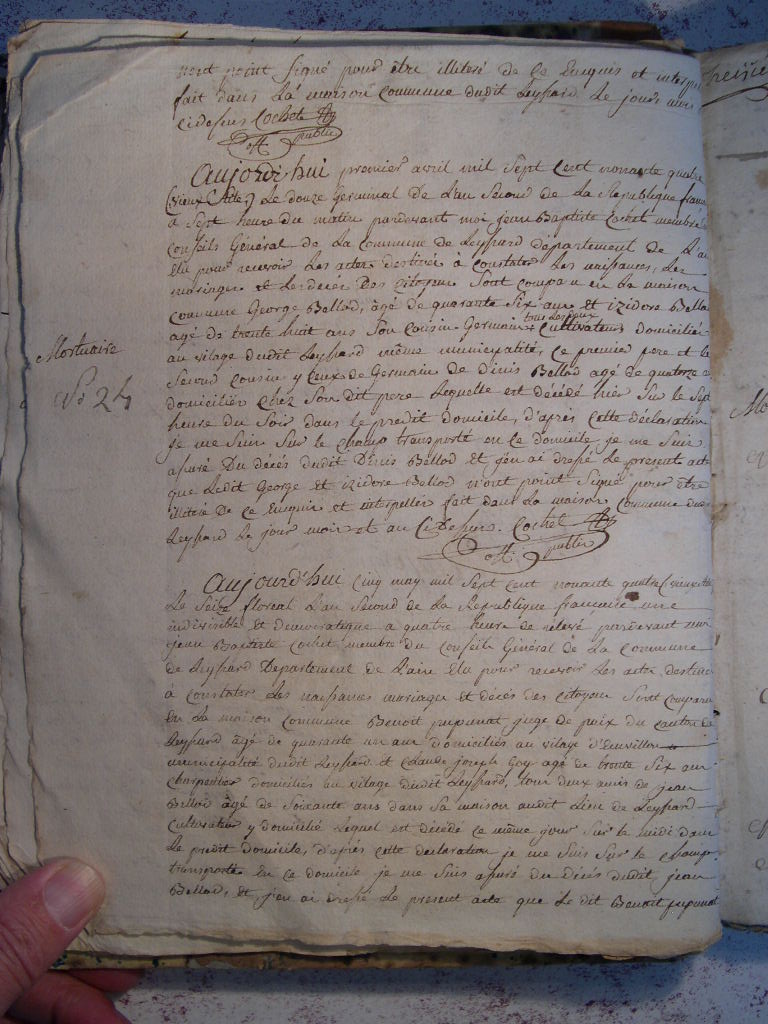 n'ont point signé pour être illiteré de ce Enquis et interpe
fait dans la maison Commune dudit Leyssard Le jour mois
cidessus Cochet
off. public
Aujordhui premier avril mil sept Cent nonante quatre
(vieux stile) Le douze Germinal de L'an Second de La République fran
a sept heure du matin pardevant moi jean Baptiste Cochet membre
Conseils Général de La Commune de Leyssard département de L'ai
Elu pour recevoir Les actes destinés à constater Les naissances, Les
mariages et Les décés Des citoyens sont comparu en La maison
commune George Bellod, âgé de quarante six ans et izidore Bello
agé de trente huit ans son Cousin Germain tous Les deux Cultivateurs domiciliés
au vilage dudit Leyssard même municipalité, Ce premier pere et le
Second Cousin y Ceux de Germain de Dinis Bellod agé de quatorze a
domiciliés chez Son dit pere Lequelle est décédé hier sur le sept
heure du Soir dans le predit domicile, d'après Cette déclaration
je me suis sur le champ transporté en Ce domicile, je me suis
assuré Du décés dudit Dinis Bellod et j'en ai dressé Le present acte
que Ledit George et izidore Bellod n'ont point signés pour être
illiteré De ce Enquis et interpellés fait dans La maison Commune dud
Leyssard Le jour mois et an Cidessus. Cochet
off. public
Mortuaire
N° 24
Aujourd'hui Cinq may mil sept Cent nonante quatre (vieux stil
Le seize floreal L'an Second de La République francaise, une
indivisible et democratique a quatre heure de relevé pardevant moi
jean Baptiste Cochet membre du Conseils Général de La Commune
de Leyssard Departement de L'ain Elu pour recevoir Les actes destinés
à constater Les naissances mariages et décés des citoyens sont Comparu
En La maison Commune Benoit jupunat juge de paix du canton de
Leyssard âgé de quarante un ans domiciliés au vilage
municipalité dudit Leyssard et Claude joseph Goy agé de trente six ans
charpentier domiciliés au village dudit Leyssard, tous deux amis de jean
Bellod âgé de soixante ans dans sa maison audit Lieu de Leyssard
Cultivateur y domicilié Lequel est décédé ce même jour sur le midi dans
Le predit domicile, d'après Cette déclaration je me suis sur le champ
transporté En ce domicile je me suis assuré du décés dudit jean
Bellod, et j'en ai dressé Le present acte que Le dit Benoit jupunat